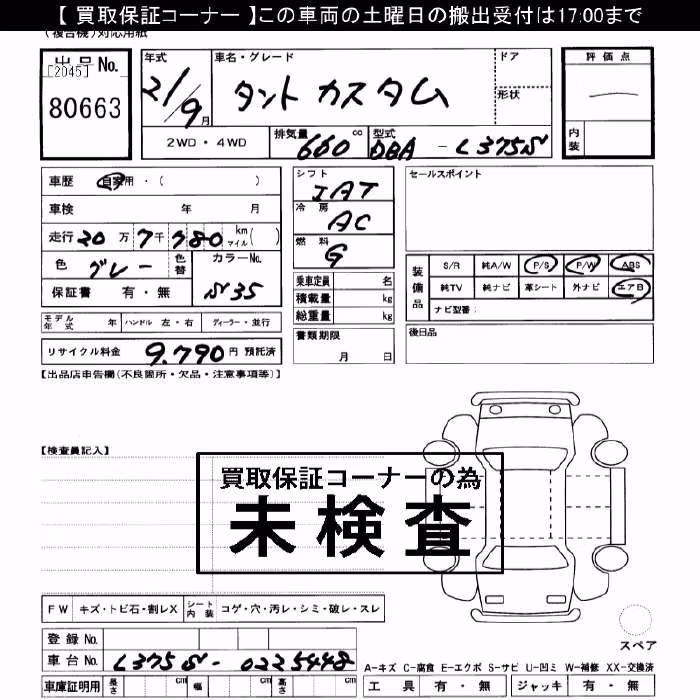 【 買取保証コーナー 】この車両の土曜日の搬出受付は17:00まで
(複合機)対応用紙
出品No.
[2045]
80663
年式
21/9月
車名・グレード
タント カスタム
ドア
形状
評価点
内装
2WD・4WD
排気量 660 cc
型式 DBA - L375S
車歴 自家用・( )
車検 年 月
走行 20万7千780 km マイル( )
色 グレー
色替
カラーNo. S35
保証書 有・無
シフト IAT
冷房 AC
燃料 G
乗車定員 名
積載量 kg
総重量 kg
書類期限 月 日
セールスポイント
装備品
S/R 純A/W P/S P/W ABS
純TV 純ナビ 革シート 外ナビ エアB
ナビ型番:
後日品
モデル年式 年 ハンドル 左・右 ディーラー・並行
リサイクル料金 9,790円 預託済
【出品店申告欄(不良箇所・欠品・注意事項等)】
【検査員記入】
買取保証コーナーの為
未検査
FW キズ・トビ石・割レX
シート内装 コゲ・穴・汚レ・シミ・破レ・スレ
登録 No.
車台 No. L375S-0225448
車庫証明用 長さ cm 幅 cm 高さ cm
スペア
A-キズ C-腐食 E-エクボ S-サビ U-凹ミ W-補修 XX-交換済
工具 有・無 ジャッキ 有・無